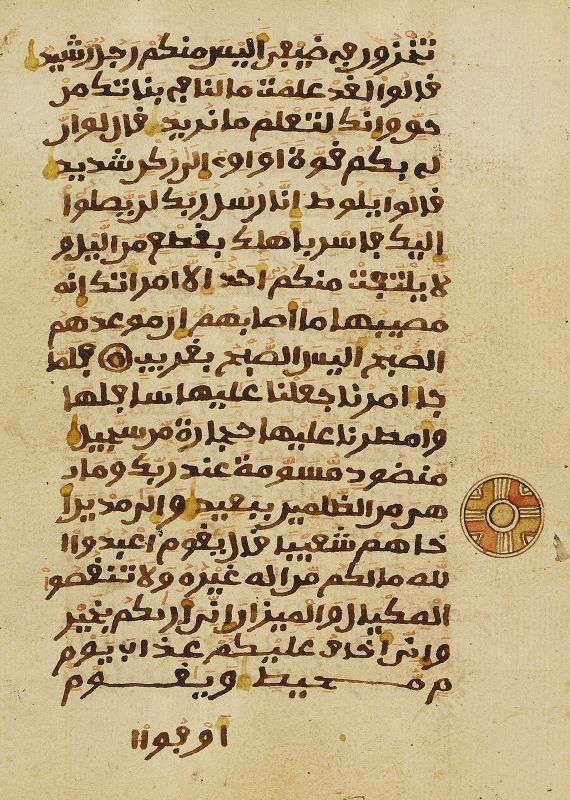 تخزون في ضيفي اليس منكم رجل رشيد
قالوا لقد علمت ما لنا في بناتك من
حق وانك لتعلم ما نريد قال لو ان
لي بكم قوة او اوي الى ركن شديد
قالوا يلوط انا رسل ربك لن يصلوا
اليك فاسر باهلك بقطع من اليل و
لا يلتفت منكم احد الا امراتك انه
مصيبها ما اصابهم ان موعدهم
الصبح اليس الصبح بقريب فلما
جا امرنا جعلنا عليها سافلها
وامطرنا عليها حجارة من سجيل
منضود مسومة عند ربك وما
هي من الظلمين ببعيد والى مدين ا
خاهم شعيبا قال يقوم اعبدوا ا
لله ما لكم من اله غيره ولا تنقصوا
المكيال والميزان اني اريكم بخير
واني اخاف عليكم عذاب يوم
محيط ويقوم
اوفوا